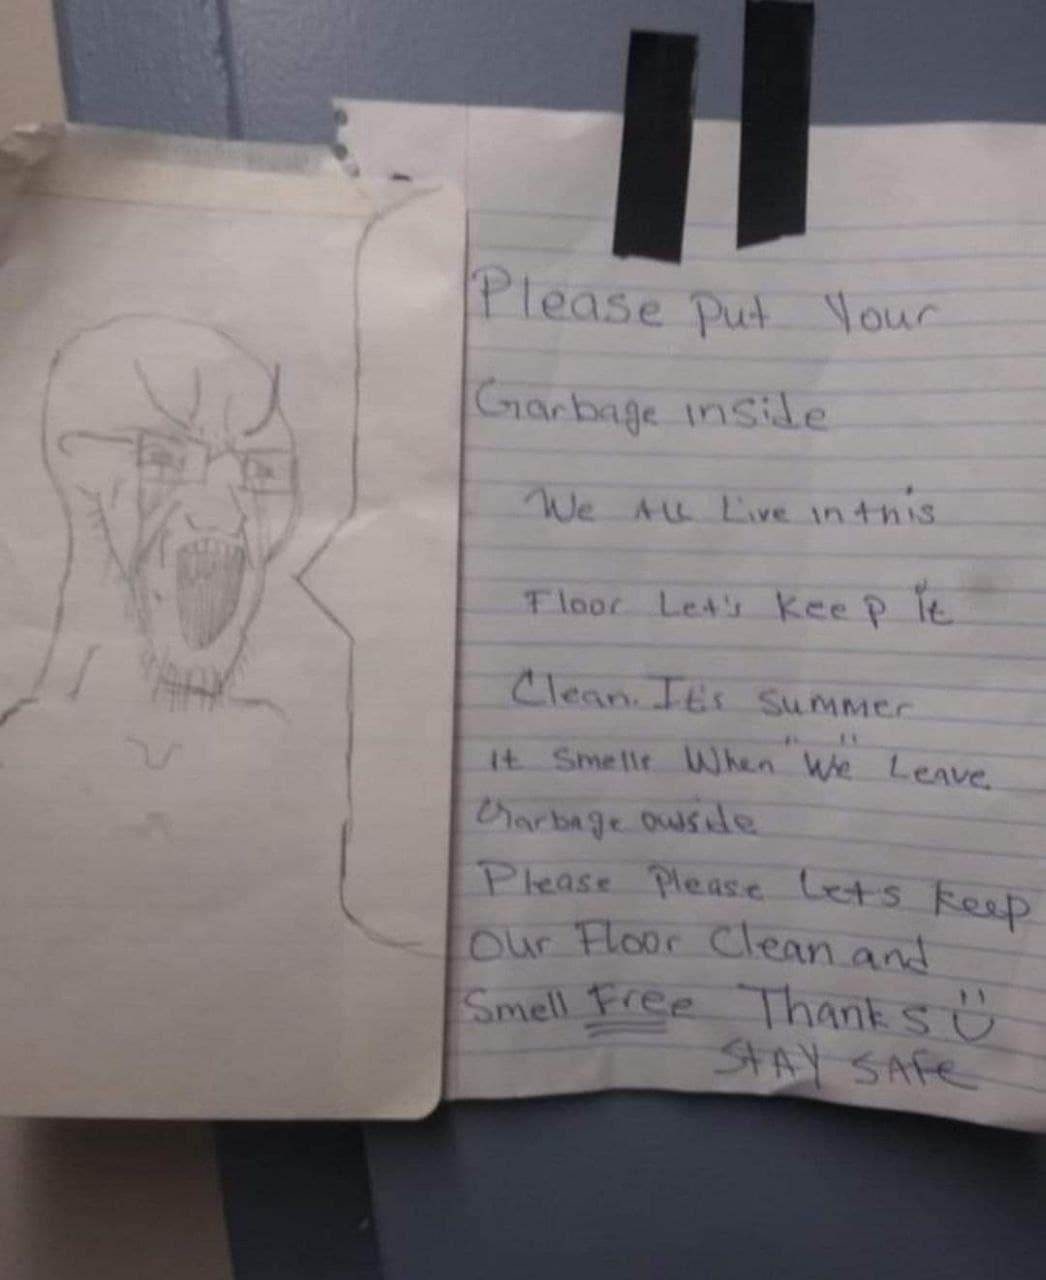 Please Put Your
Garbage inside
We All Live in this
Floor Let's Keep it
Clean. It's Summer
it Smells When "We" Leave
Garbage owside
Please Please Lets keep
Our Floor Clean and
Smell Free Thanks
STAY SAFE